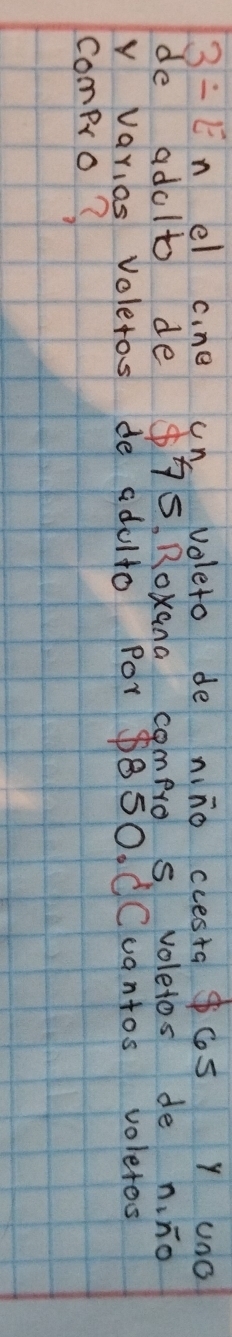 3-En el cine un voleto de niño cuesta $65 y uno
de adulto de $75. Roxana compro 5 voletos de niño
y varias voletos de adulto por $850. ¿Cuantos voletos
compro?